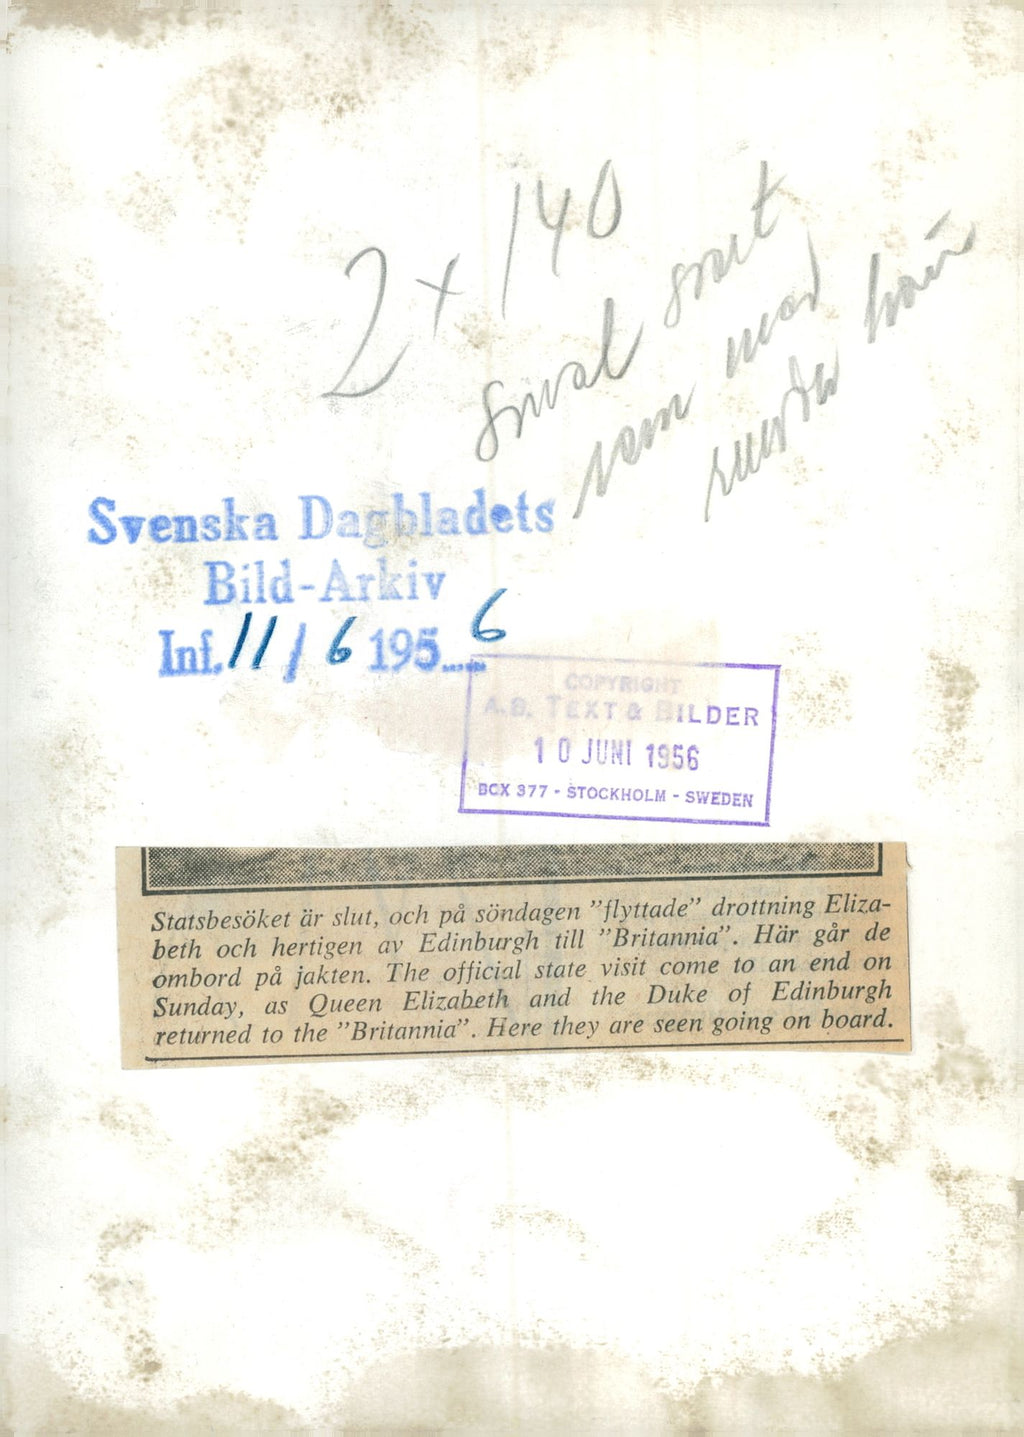 2 x 140
smal svart
ram med
runda hörn
Svenska Dagbladets
Bild-Arkiv
Inf. 11/6 1956
COPYRIGHT
A.B. TEXT & BILDER
10 JUNI 1956
BOX 377 - STOCKHOLM - SWEDEN
Statsbesöket är slut, och på söndagen ”flyttade” drottning Eliza-
beth och hertigen av Edinburgh till ”Britannia”. Här går de
ombord på jakten. The official state visit come to an end on
Sunday, as Queen Elizabeth and the Duke of Edinburgh
returned to the ”Britannia”. Here they are seen going on board.